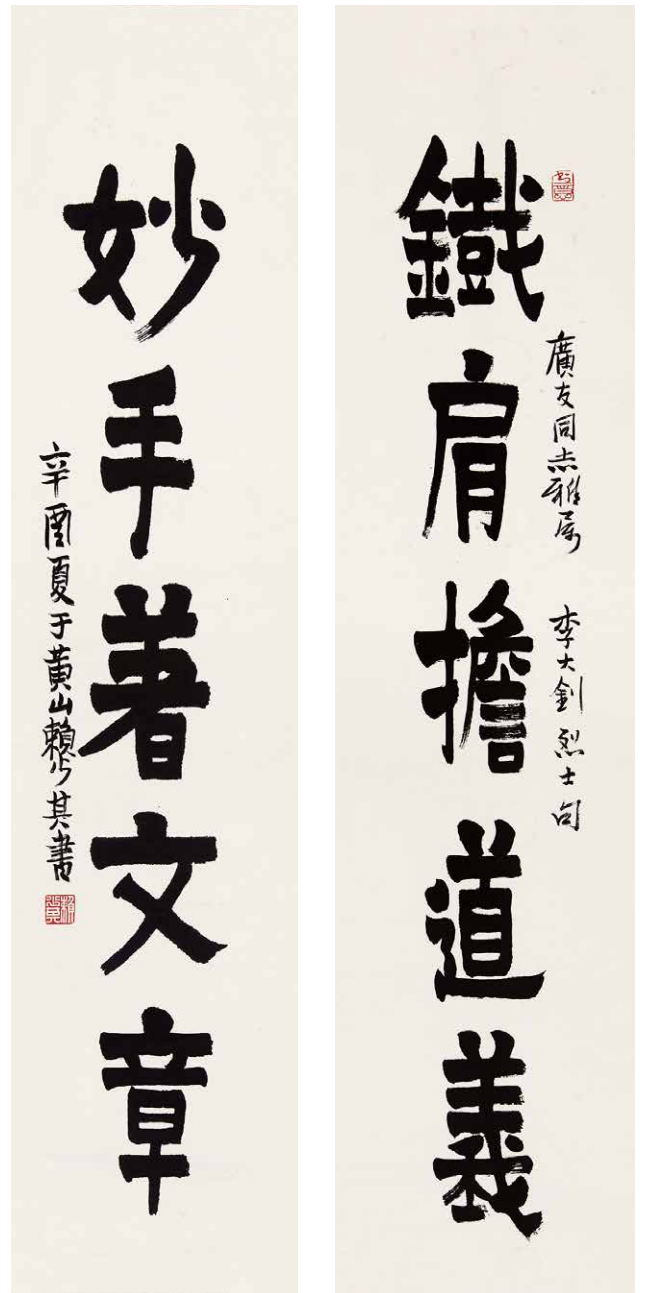 鐵肩擔道義
廣友同志雅屬
李大釗烈士句
妙手著文章
辛酉夏于黄山賴少其書